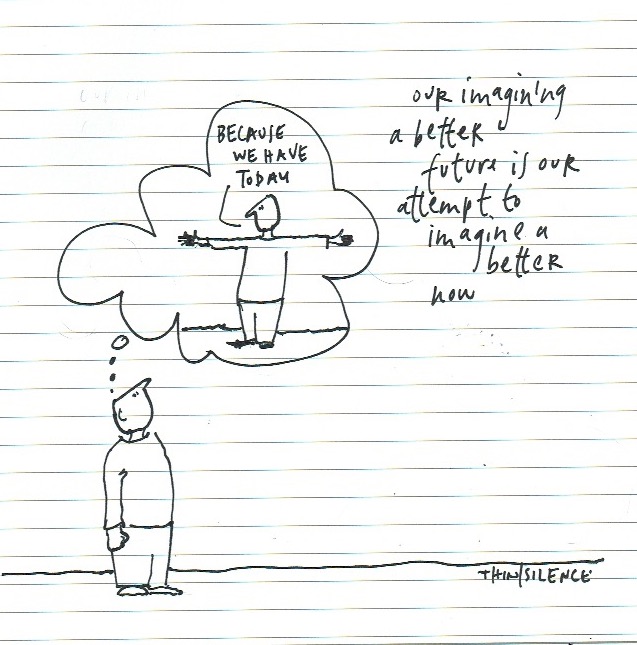 BECAUSE
WE HAVE
TODAY
our imagining
a better
future is our
attempt to
imagine a
better
now
THIN/SILENCE